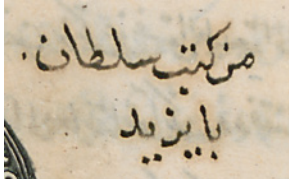 من كتب سلطان
بايزيد